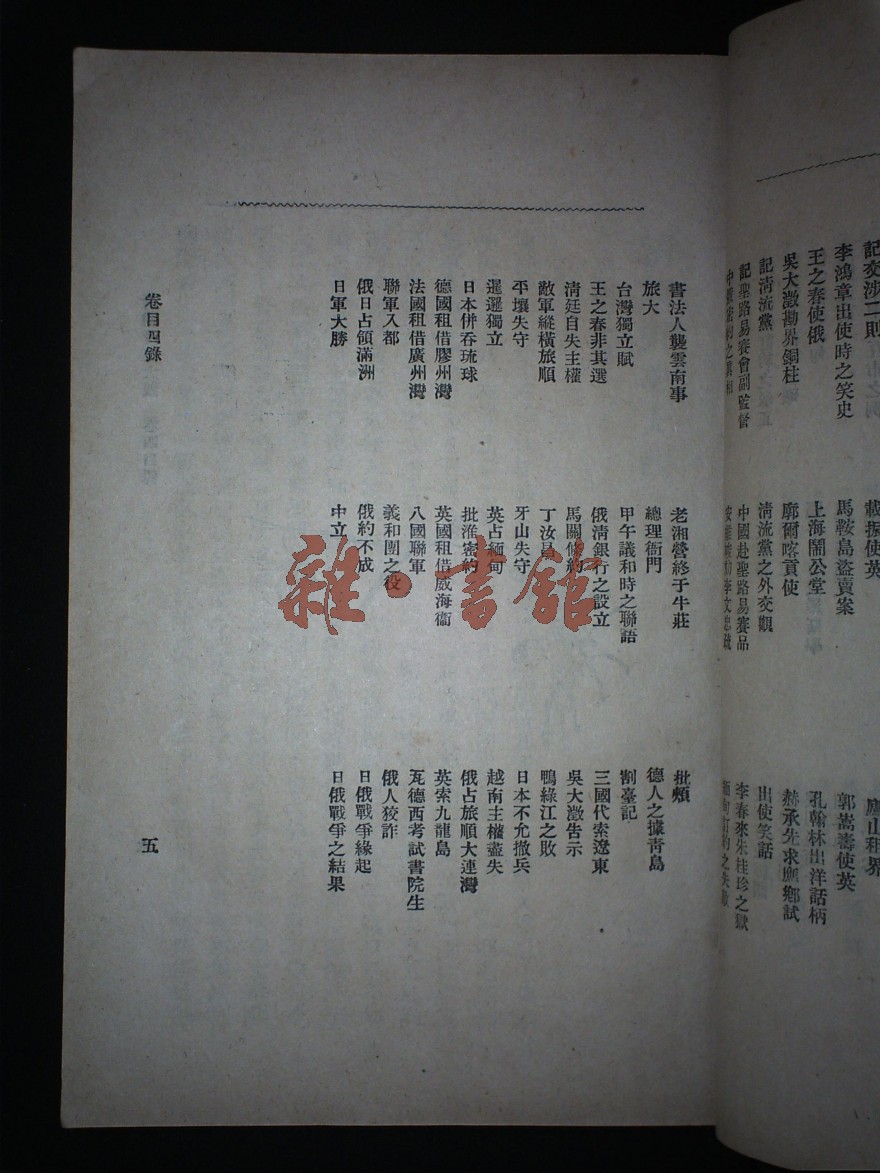 記交涉二則 載振使英 廬山租界
李鴻章出使時之笑史 馬鞍島盜賣案 郭嵩燾使英
王之春使俄 上海鬧公堂 孔翰林出洋話柄
吳大澂勘界銅柱 廓爾喀貢使 赫承先求應鄉試
記清流黨 清流黨之外交觀 出使笑話
記聖路易賽會副監督 中國赴聖路易賽品 李春來朱桂珍之獄
書法人襲雲南事 老湘營終于牛莊 批頰
旅大 總理衙門 德人之據靑島
台灣獨立賦 甲午議和時之聯語 割臺記
王之春非其選 俄清銀行之設立 三國代索遼東
淸廷自失主權 馬關條約 吳大澂告示
敵軍縱橫旅順 丁汝昌 鴨綠江之敗
平壤失守 牙山失守 日本不允撤兵
暹邏獨立 英占緬甸 越南主權盡失
日本併吞琉球 批准密約 俄占旅順大連灣
德國租借膠州灣 英國租借威海衞 英索九龍島
法國租借廣州灣 八國聯軍 瓦德西考試書院生
聯軍入都 義和團之役 俄人狡詐
俄日占領滿洲 俄約不成 日俄戰爭緣起
日軍大勝 中立 日俄戰爭之結果
卷目四錄
五
雜·書館